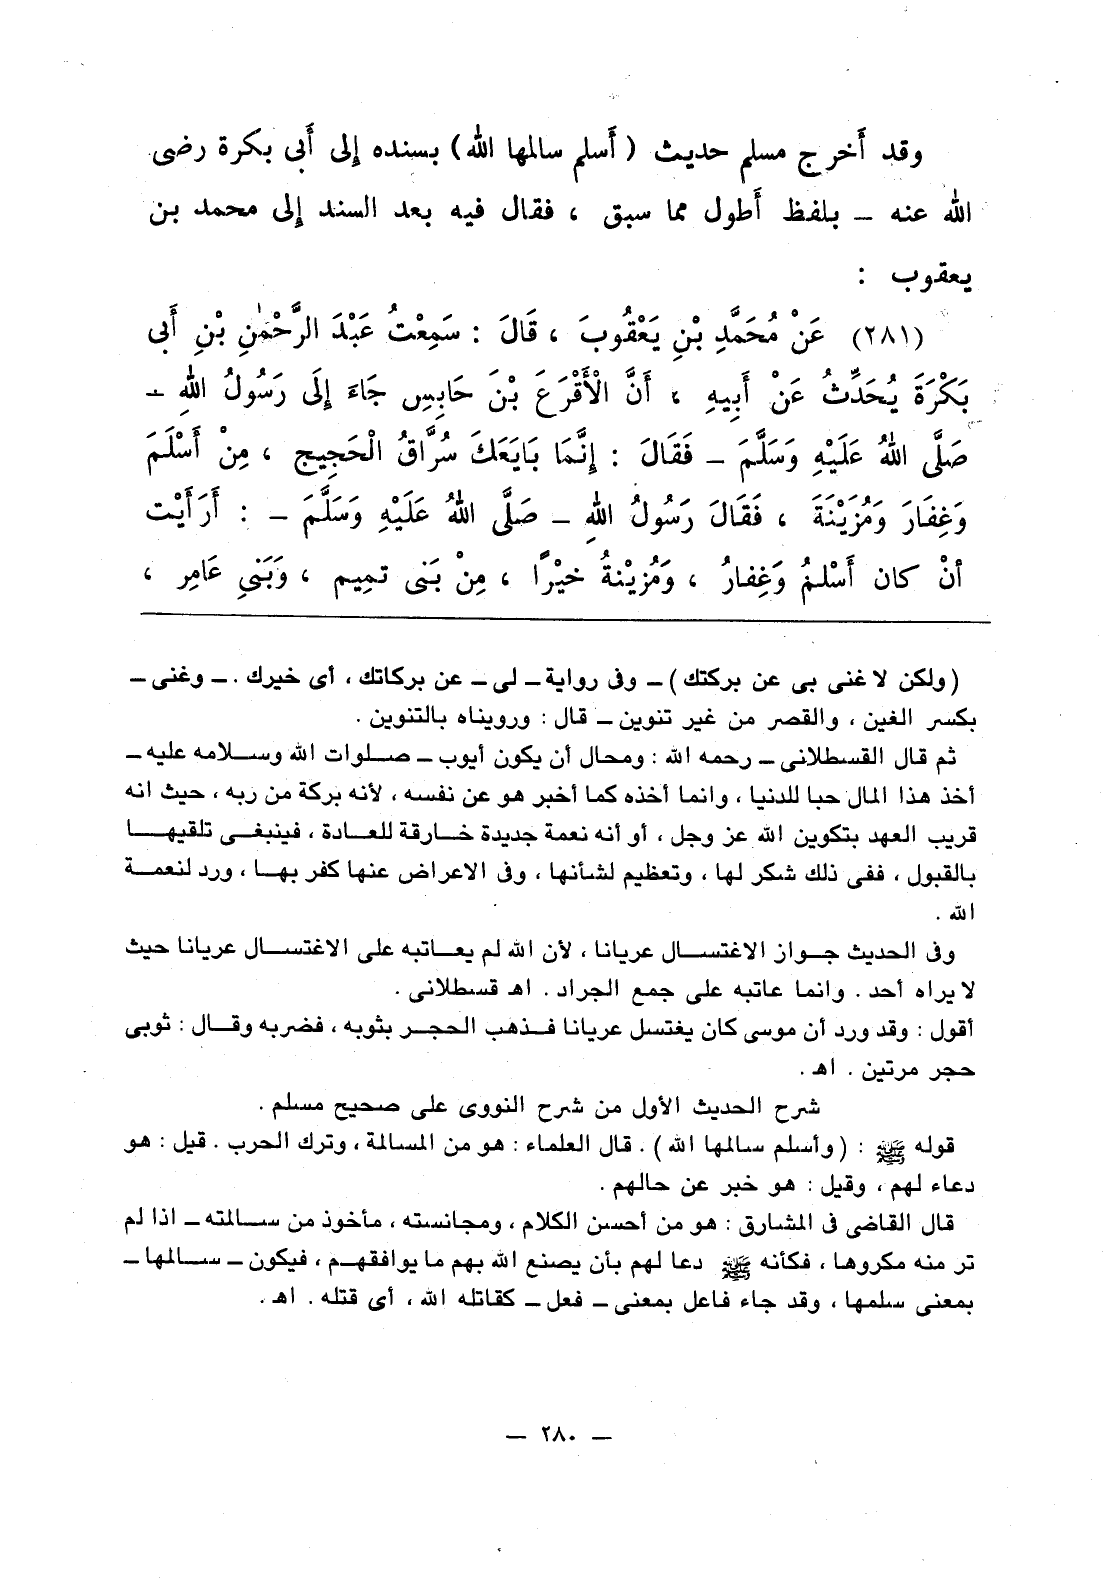 وقد أَخرج مسلم حديث (أَسلم سالمها الله) بسنده إلى أَبى بكرة رضى
الله عنه - بلفظ أَطول مما سبق ، فقال فيه بعد السند إلى محمد بن
يعقوب :
(٢٨١) عَنْ مُحَمَّدِ بْنِ يَعْقُوبَ ، قَالَ : سَمِعْتُ عَبْدَ الرَّحْمٰنِ بْنِ أَبى
بَكْرَةَ يُحَدِّثُ عَنْ أَبِيهِ ، أَنَّ الْأَقْرَعَ بْنَ حَابِسٍ جَاءَ إِلَى رَسُولُ اللهِ -
صَلَّى اللهُ عَلَيْهِ وَسَلَّمَ - فَقَالَ : إِنَّمَا بَايَعَكَ سُرَّاقُ الْحَجِيجِ ، مِنْ أَسْلَمَ
وَغِفَارَ وَمُزَيْنَةَ ، فَقَالَ رَسُولُ اللهِ - صَلَّى اللهُ عَلَيْهِ وَسَلَّمَ - : أَرَأَيْت
أنْ كان أَسْلمُ وَغِفارُ ، وَمُزيْنةُ خيْرًا ، مِنْ بَنى تمِيم ، وَبَنيِ عَامِر ،
(ولكن لا غنى بى عن بركتك) - وفى رواية - لى - عن بركاتك ، أى خيرك . - وغنى -
بكسر الغين ، والقصر من غير تنوين - قال : ورويناه بالتنوين .
ثم قال القسطلانى - رحمه الله : ومحال أن يكون أيوب - صلوات الله وسلامه عليه -
أخذ هذا المال حبا للدنيا ، وانما أخذه كما أخبر هو عن نفسه ، لأنه بركة من ربه ، حيث انه
قريب العهد بتكوين الله عز وجل ، أو أنه نعمة جديدة خارقة للعادة ، فينبغى تلقيها
بالقبول ، ففى ذلك شكر لها ، وتعظيم لشأنها ، وفى الاعراض عنها كفر بها ، ورد لنعمة
الله .
وفى الحديث جواز الاغتسال عريانا ، لأن الله لم يعاتبه على الاغتسال عريانا حيث
لا يراه أحد . وانما عاتبه على جمع الجراد . اهـ قسطلانى .
أقول : وقد ورد أن موسى كان يغتسل عريانا فذهب الحجر بثوبه ، فضربه وقال : ثوبى
حجر مرتين . اهـ .
شرح الحديث الأول من شرح النووى على صحيح مسلم .
قوله ﷺ : (وأسلم سالمها الله) . قال العلماء : هو من المسالمة ، وترك الحرب . قيل : هو
دعاء لهم ، وقيل : هو خبر عن حالهم .
قال القاضى فى المشارق : هو من أحسن الكلام ، ومجانسته ، مأخوذ من سالمته - اذا لم
تر منه مكروها ، فكأنه ﷺ دعا لهم بأن يصنع الله بهم ما يوافقهم ، فيكون - سالمها -
بمعنى سلمها ، وقد جاء فاعل بمعنى - فعل - كقاتله الله ، أى قتله . اهـ .
- ٢٨٠ -